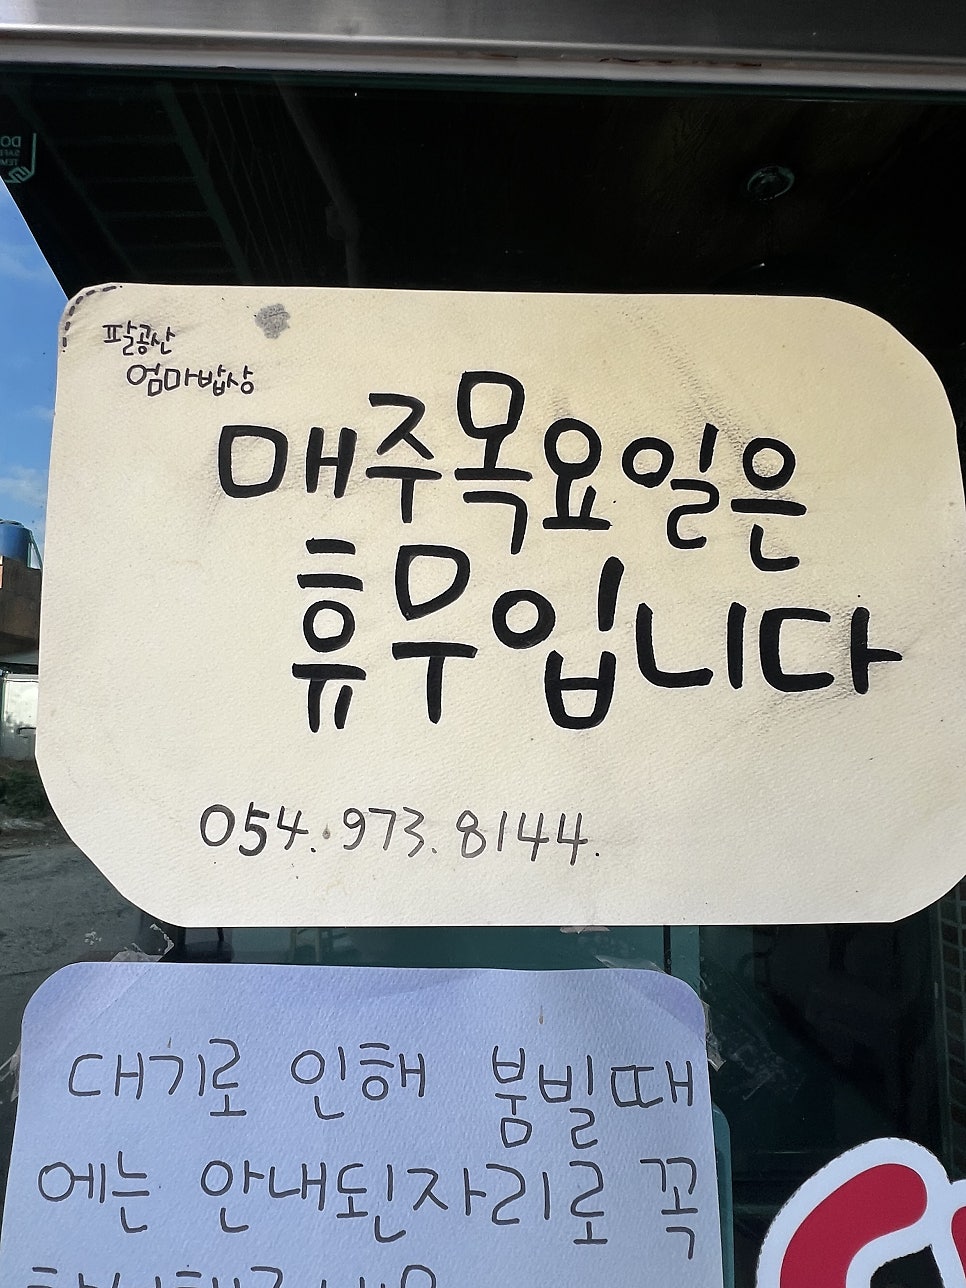 팔공산
엄마밥상
매주목요일은
휴무입니다
054.973.8144.
대기로 인해 붐빌때
에는 안내된자리로 꼭